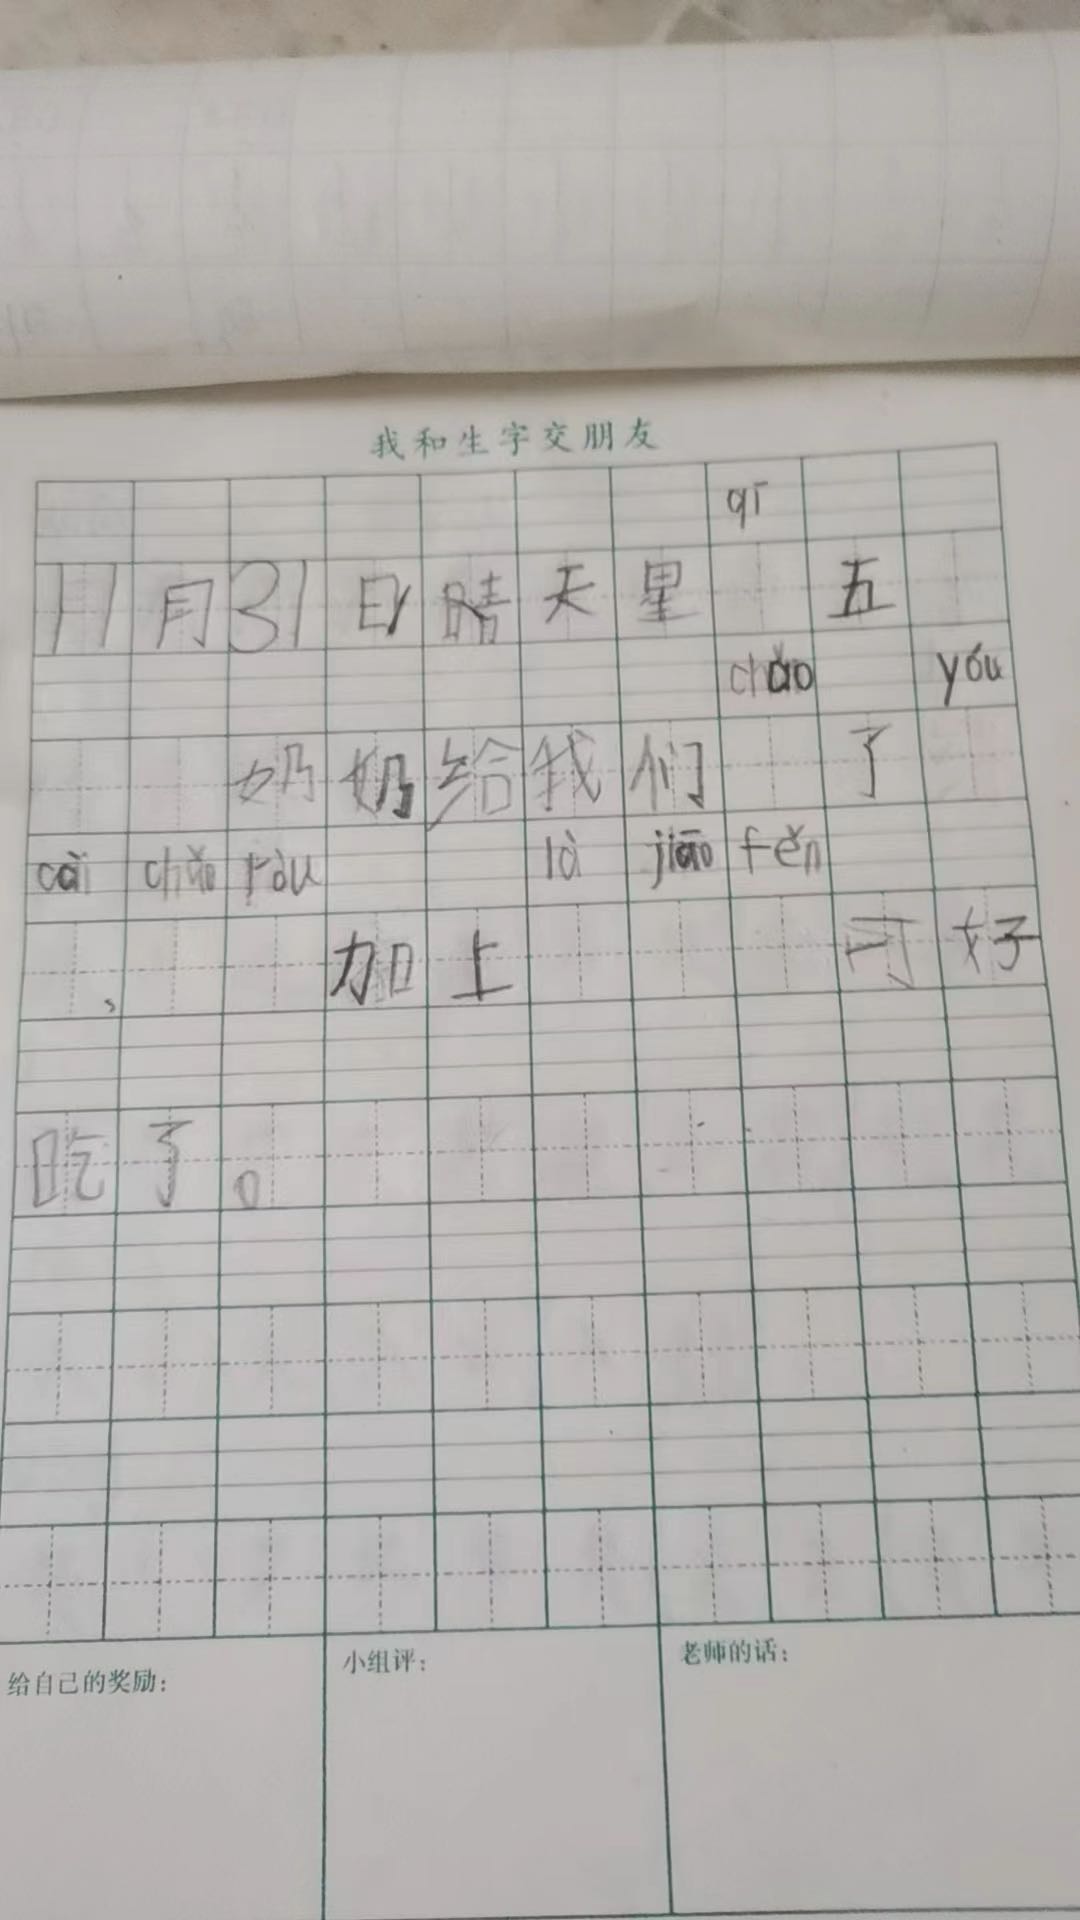 我和生字交朋友
qī
11月31日晴天星 五
chǎo yóu
奶奶给我们 了
cài chǎo ròu là jiāo fěn
、 加上 可好
吃了。
给自己的奖励: 小组评: 老师的话: